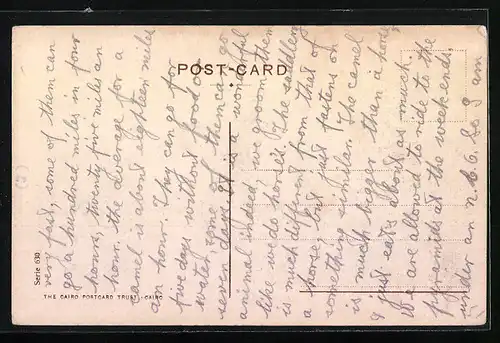 POST-CARD
Serie 630
THE CAIRO POSTCARD TRUST, CAIRO
(2)
very fast, some of them can
go a hundred miles in four
hours, twenty five miles an
hour. the average for a
camel is about eighteen miles
an hour. They can go for
five days without food or
water, some of them can go
seven days. It is a wonderful
animal indeed, we groom them
like we do horses. The saddlery
is much different from that of
a horse, but just fastens on
something similar. The camel
is much bigger than a horse,
& just eats about as much.
We are allowed to ride to the
pyramids at the week ends.
under an N.C.O. So I am